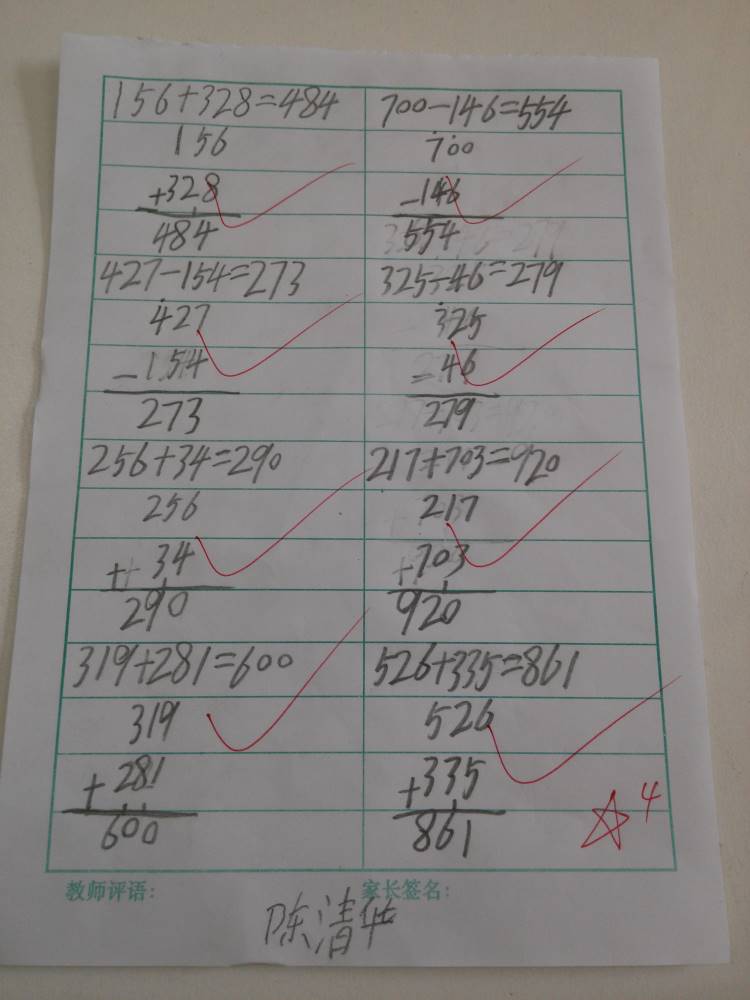 156+328=484
156
+328
484
700-146=554
700
-146
554
427-154=273
427
-154
273
325-46=279
325
-46
279
256+34=290
256
+34
290
217+703=920
217
+703
920
319+281=600
319
+281
600
526+335=861
526
+335
861
4
教师评语:
家长签名:
陈清华